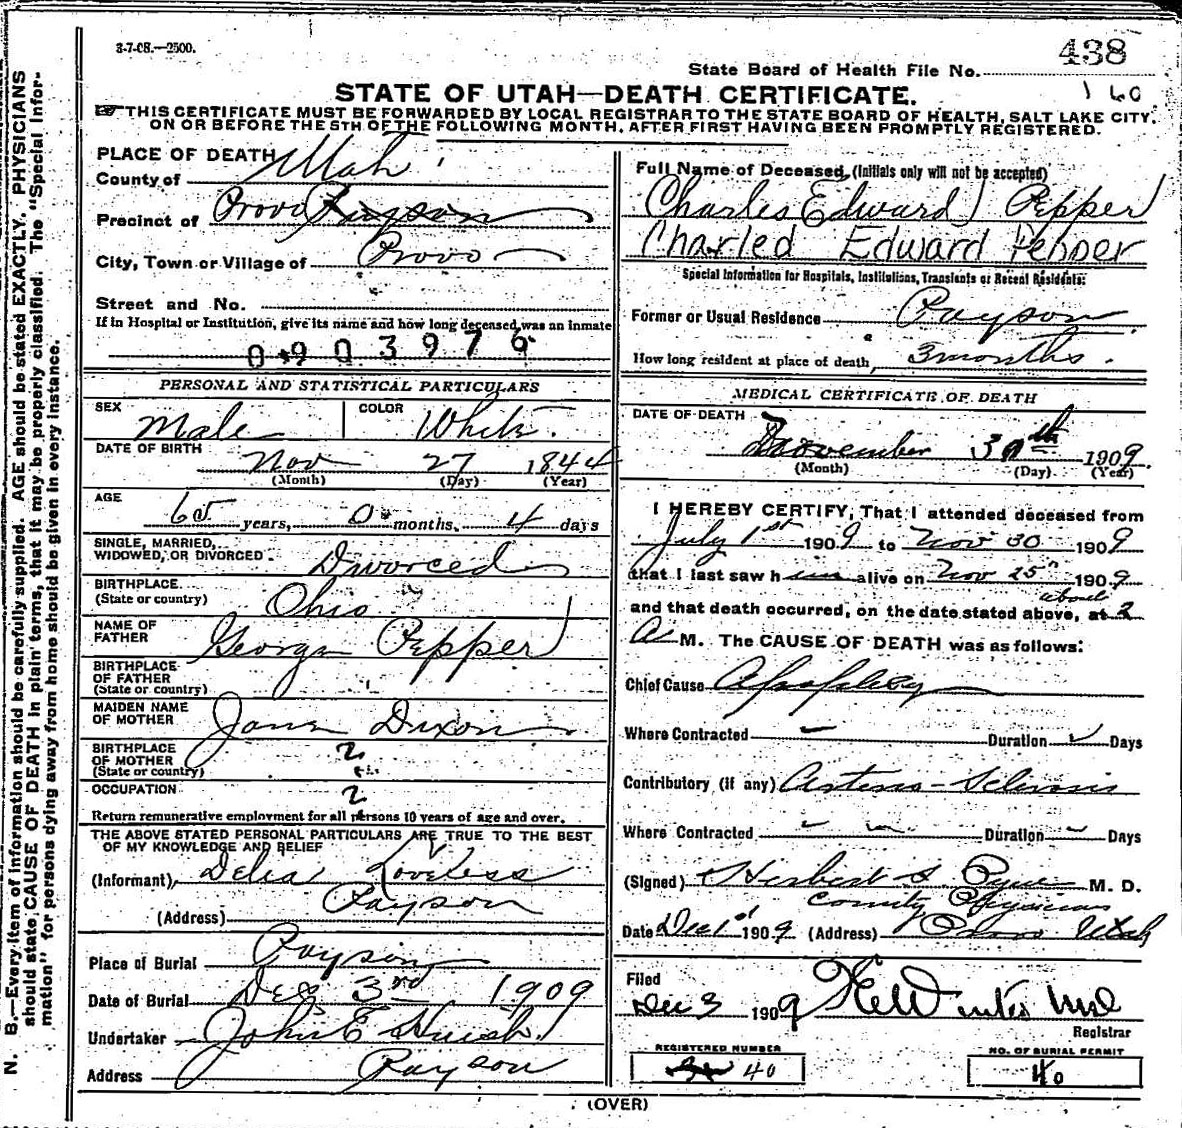 3-7-08.—2500.
438
State Board of Health File No.
160
STATE OF UTAH—DEATH CERTIFICATE.
THIS CERTIFICATE MUST BE FORWARDED BY LOCAL REGISTRAR TO THE STATE BOARD OF HEALTH, SALT LAKE CITY.
ON OR BEFORE THE 5TH OF THE FOLLOWING MONTH, AFTER FIRST HAVING BEEN PROMPTLY REGISTERED.
N. B.—Every item of information should be carefully supplied. AGE should be stated EXACTLY. PHYSICIANS
should state CAUSE OF DEATH in plain terms, that it may be properly classified. The "Special Infor-
mation" for persons dying away from home should be given in every instance.
PLACE OF DEATH
County of Utah
Precinct of Provo Payson
City, Town or Village of Provo
Street and No.
If in Hospital or Institution, give its name and how long deceased was an inmate
0903976
PERSONAL AND STATISTICAL PARTICULARS
SEX Male COLOR White.
DATE OF BIRTH Nov 27 1844
(Month) (Day) (Year)
AGE 65 years, 0 months, 4 days
SINGLE, MARRIED,
WIDOWED, OR DIVORCED Divorced
BIRTHPLACE
(State or country) Ohio
NAME OF
FATHER George Pepper
BIRTHPLACE
OF FATHER
(State or country)
MAIDEN NAME
OF MOTHER Jane Dixon
BIRTHPLACE
OF MOTHER
(State or country) ?
OCCUPATION ?
Return remunerative employment for all persons 10 years of age and over.
THE ABOVE STATED PERSONAL PARTICULARS ARE TRUE TO THE BEST
OF MY KNOWLEDGE AND BELIEF
(Informant), Delia Loveless
(Address) Payson
Place of Burial Payson
Date of Burial Dec 3rd 1909
Undertaker John E Huish
Address Payson
Full Name of Deceased, (Initials only will not be accepted)
Charles Edward Pepper
Charled Edward Pepper
Special Information for Hospitals, Institutions, Transients or Recent Residents:
Former or Usual Residence Payson
How long resident at place of death, 3 months.
MEDICAL CERTIFICATE OF DEATH
DATE OF DEATH
November 30th 1909.
(Month) (Day) (Year)
I HEREBY CERTIFY, That I attended deceased from
July 1st 1909 to Nov 30 1909
that I last saw him alive on Nov 25" 1909
about
and that death occurred, on the date stated above, at 2
A M. The CAUSE OF DEATH was as follows:
Chief Cause Apoplexy
Where Contracted — Duration Days
Contributory (if any) Arterio-Sclerosis
Where Contracted Duration — Days
(Signed) Herbert S Pyne M. D.
County Physician
Date Dec 1st 1909 (Address) Provo Utah
Filed
Dec 3 1909
Registrar
REGISTERED NUMBER
40
NO. OF BURIAL PERMIT
40
(OVER)